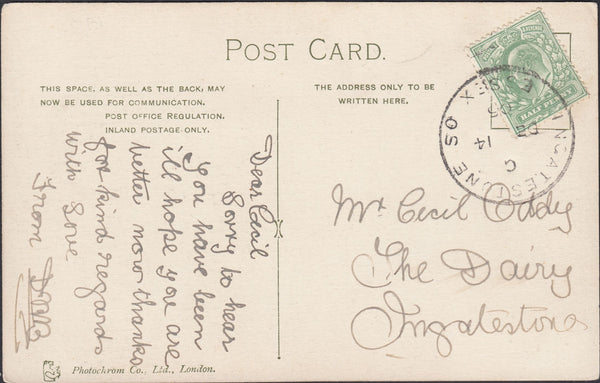 POST CARD.
THIS SPACE, AS WELL AS THE BACK, MAY
NOW BE USED FOR COMMUNICATION.
POST OFFICE REGULATION.
INLAND POSTAGE ONLY.
THE ADDRESS ONLY TO BE
WRITTEN HERE.
Dear Cecil
Sorry to hear
You have been
ill hope you are
better now thanks
for kind regards
with Love
From
HALF PENNY
INGATESTONE S.O.
ESSEX
C
14
DE
05
Mr Cecil
The Dairy
Ingatestone
Photochrom Co., Ltd., London.